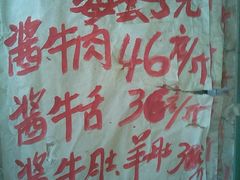 酱牛肉46元/斤
酱牛舌36元/斤
酱牛肚.羊肚3